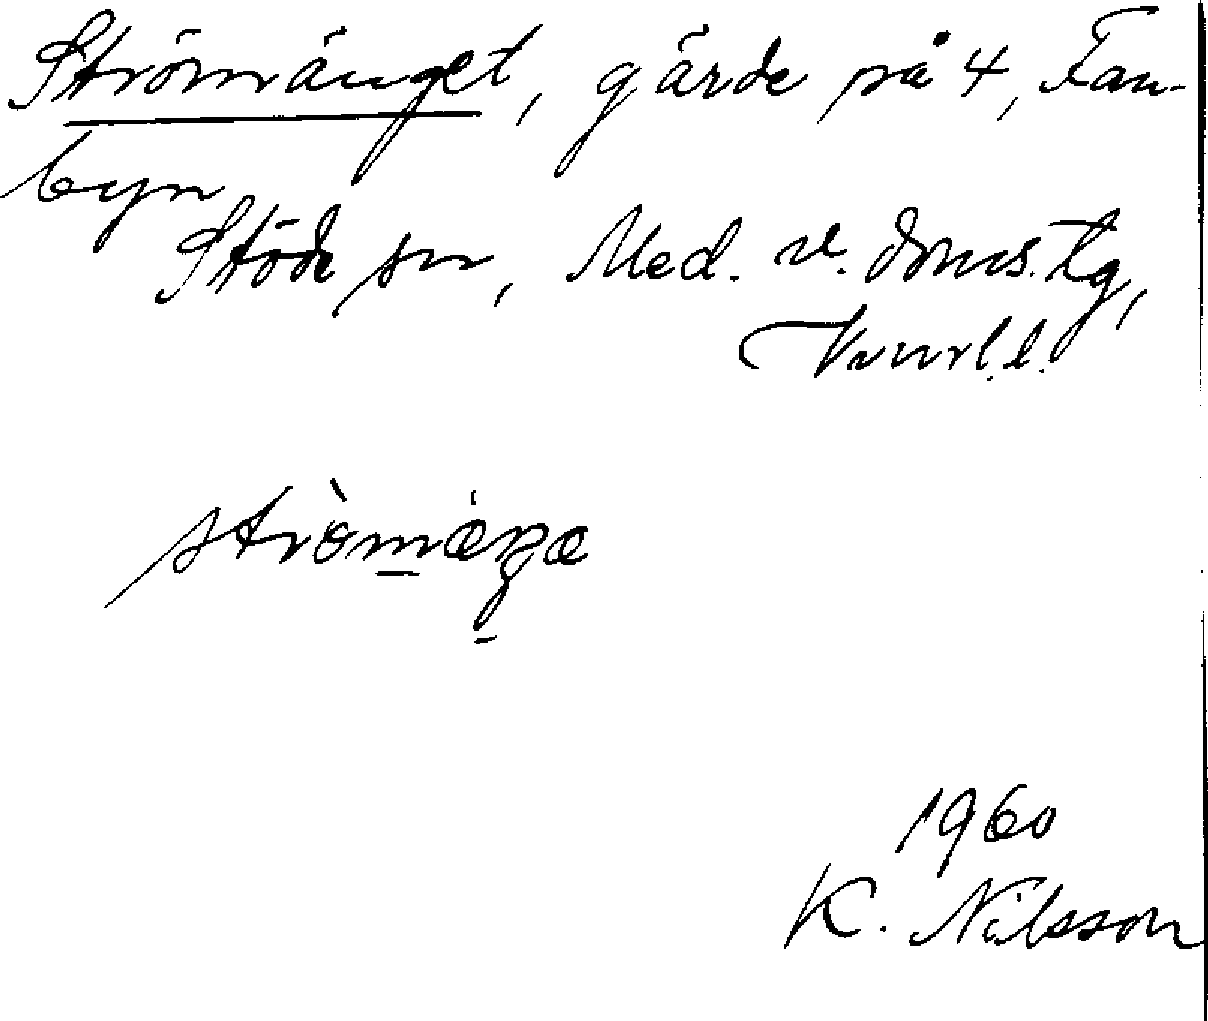 Strömänget, gärde på 4, Fan-
byn
Stöde sn, Med. v. doms. tg,
Vnrl. l.
strò̀m̲æŋæ
1960
K. Nilsson